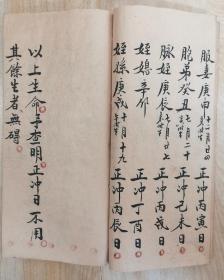 服妻庚申十一月廿四 正冲丙寅日
胞弟癸丑七月二十 正冲己未日
脉姪庚辰七月廿七 正冲丙戌日
姪媳辛卯 正冲丁酉日
姪孫庚戌十月十九 正冲丙辰日
以上生命主查明正冲日不用
其餘生者無碍